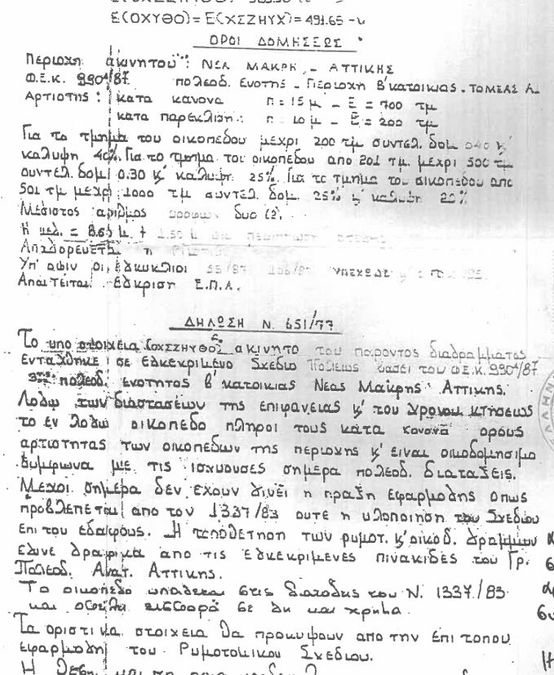 Ε(ΟΧΥΘΟ)=Ε(ΧΣΖΖΗΥΧ)=491.65
ΟΡΟΙ ΔΟΜΗΣΕΩΣ
Περιοχη ακινητου: ΝΕΑ ΜΑΚΡΗ - ΑΤΤΙΚΗΣ
Φ.Ε.Κ. 990Δ/87 πολεοδ. Ενοτης - Περιοχη Β'κατοικιας - ΤΟΜΕΑΣ Α.
Αρτιοτης: κατα κανονα Π=15μ - Ε=700 τμ
κατα παρεκλιση: Π=10μ - Ε=200 τμ
Για το τμημα του οικοπεδου μεχρι 200 τμ συντελ. δομ 0.40 κ'
καλυψη 40%. Για το τμημα του οικοπεδου απο 201 τμ. μεχρι 500 τμ
συντελ. δομ 0.30 κ' καλυψη 25%. Για το τμημα του οικοπεδου απο
501 τμ μεχρι 1000 τμ συντελ. δομ. 25% κ' καλυψη 20%
Μεγιστος αριθμος οροφων δυο (2).
Απαγορευεται η
Υπ' οψιν οι εγκυκλιοι 55/87
Απαιτειται εγκριση Ε.Π.Α.
ΔΗΛΩΣΗ Ν. 651/77
Το υπο στοιχεια (ΟΧΣΖΗΥΘΟ) ακινητο του παροντος διαγραμματος
ενταχθηκε σε εγκεκριμενο Σχεδιο Πολεως βασει του Φ.Ε.Κ. 990Δ/87
πολεοδ. ενοτητος β' κατοικιας Νεας Μακρης Αττικης.
Λογω των διαστασεων της επιφανειας κ' του χρονου κτησεως
το εν λογω οικοπεδο πληροι τους κατα κανονα ορους
αρτιοτητας των οικοπεδων της περιοχης κ' ειναι οικοδομησιμο
συμφωνα με τις ισχυουσες σημερα πολεοδ. διαταξεις.
Μεχρι σημερα δεν εχουν γινει η πραξη εφαρμογης οπως
προβλεπεται απο τον 1337/83 ουτε η υλοποιηση του Σχεδιου
επι του εδαφους. Η τοποθετηση των ρυμοτ. κ' οικοδ. γραμμων
εγινε γραφικα απο τις εγκεκριμενες πινακιδες του Γρ.
Πολεοδ. Ανατ. Αττικης.
Το οικοπεδο υπαγεται στις διαταξης του Ν. 1337/83
και οφειλει εισφορα σε γη και χρημα.
Τα οριστικα στοιχεια θα προκυψουν απο την επι τοπου
εφαρμογη του Ρυμοτομικου Σχεδιου.